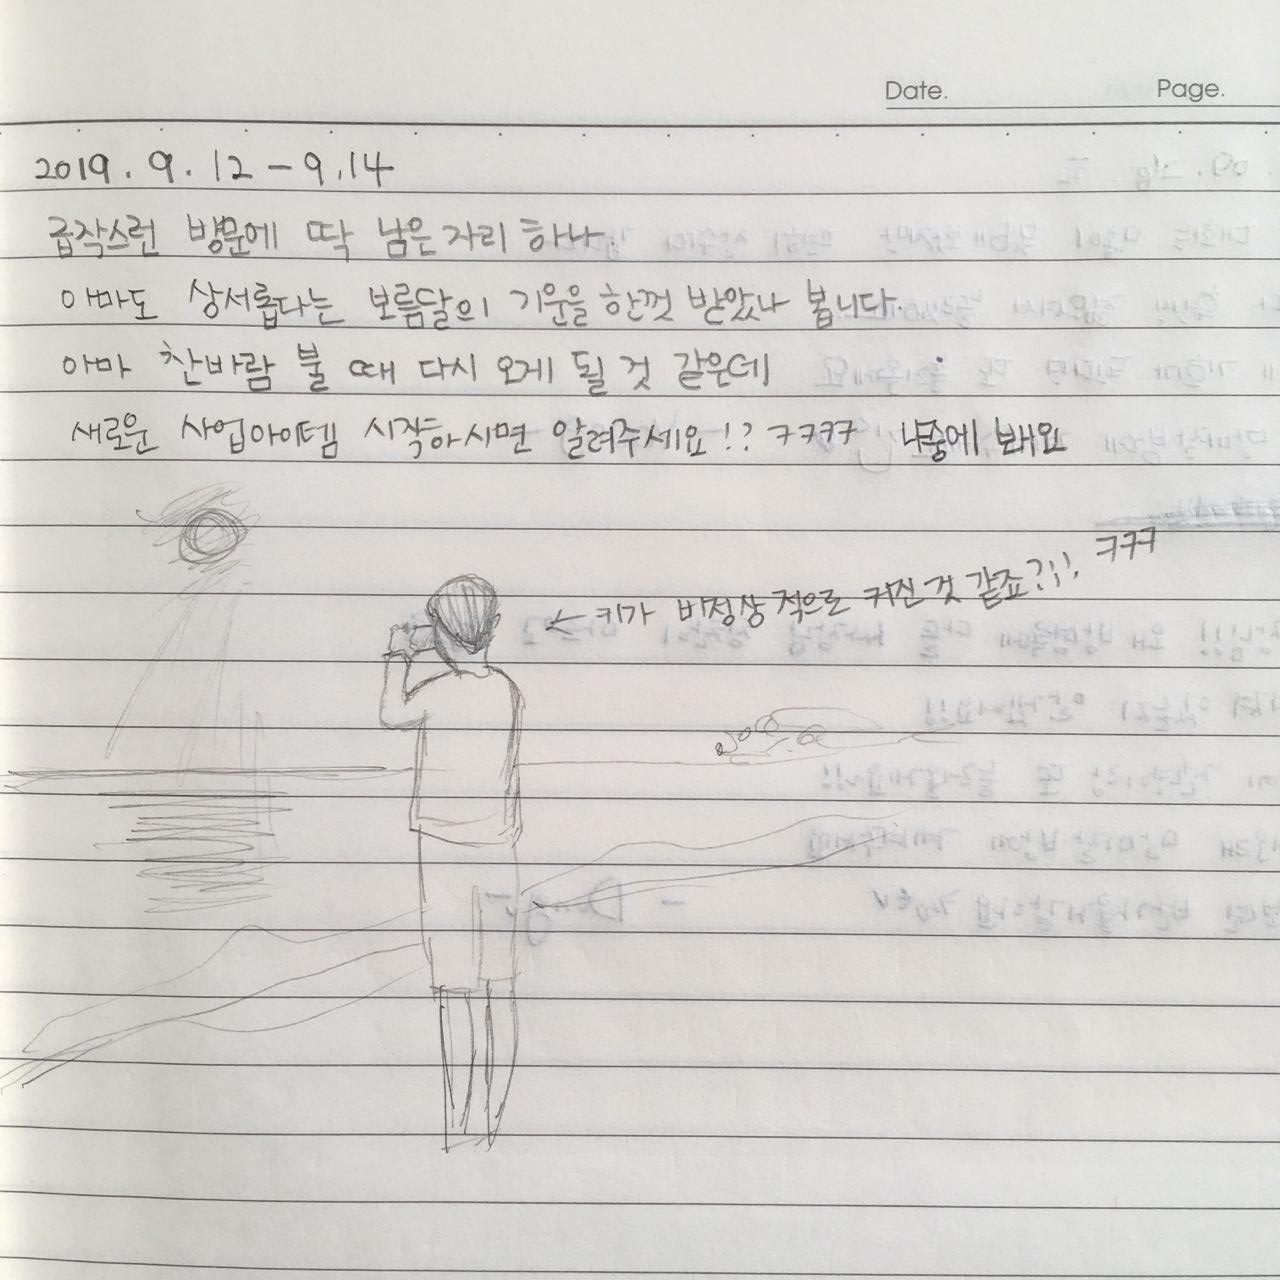 Date. Page.
2019. 9. 12 - 9.14
급작스런 방문에 딱 남은 자리 하나.
아마도 상서롭다는 보름달의 기운을 한껏 받았나 봅니다.
아마 찬바람 불 때 다시 오게 될 것 같은데
새로운 사업아이템 시작하시면 알려주세요!? ㅋㅋㅋㅋ 나중에 봬요
← 키가 비정상적으로 커진 것 같죠?!!. ㅋㅋㅋ